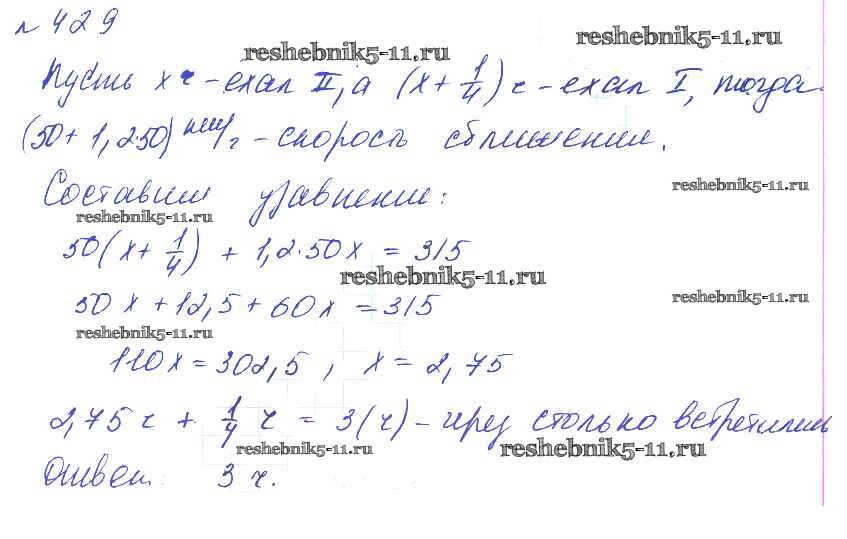 № 429
reshebnik5-11.ru
reshebnik5-11.ru
Пусть x ч - ехал II, а (x + 1/4) ч - ехал I, тогда
(50 + 1,2·50) км/ч - скорость сближения.
reshebnik5-11.ru
Составим уравнение:
reshebnik5-11.ru
50(x + 1/4) + 1,2·50x = 315
reshebnik5-11.ru
50x + 12,5 + 60x = 315
reshebnik5-11.ru
reshebnik5-11.ru
110x = 302,5 , x = 2,75
2,75 ч + 1/4 ч = 3(ч) - через столько встретились
reshebnik5-11.ru
reshebnik5-11.ru
Ответ: 3 ч.